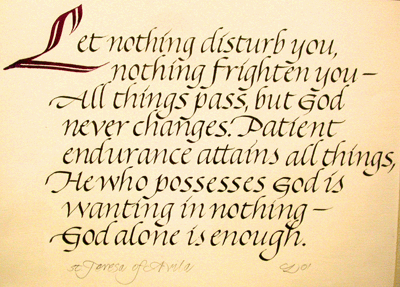 Let nothing disturb you,
nothing frighten you –
All things pass, but God
never changes. Patient
endurance attains all things,
He who possesses God is
wanting in nothing –
God alone is enough.
st Teresa of Avila